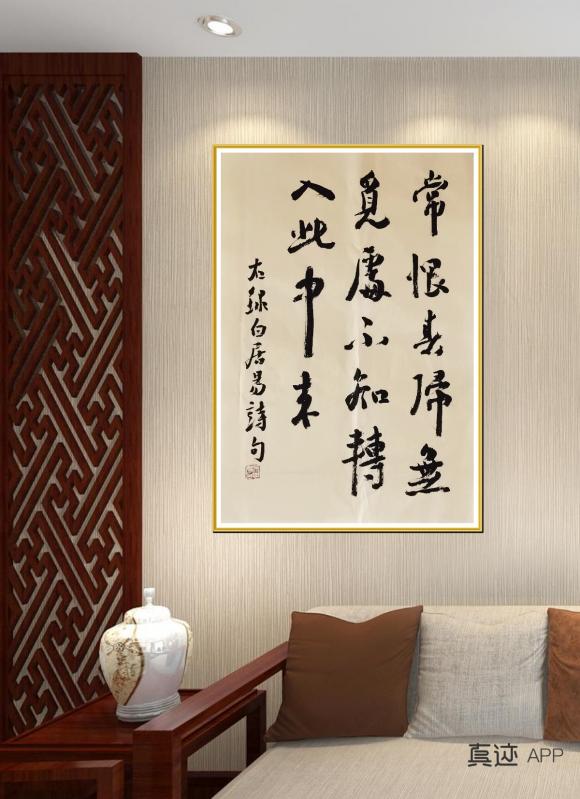 常恨春歸無
覓處不知轉
入此中来
右録白居易詩句
真迹 APP